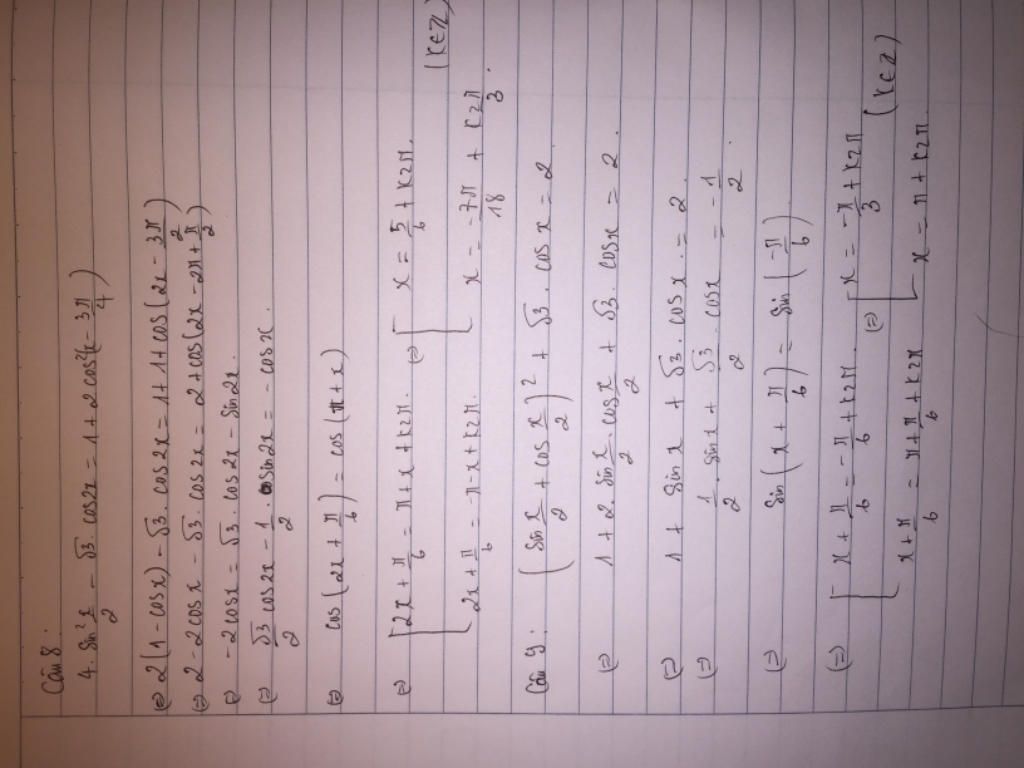 Câu 8:
4. sin² x/2 - √3. cos2x = 1 + 2 cos²(x - 3π/4)
⇔ 2(1 - cosx) - √3. cos2x = 1 + 1 + cos(2x - 3π/2)
⇔ 2 - 2cosx - √3. cos2x = 2 + cos(2x - 2π + π/2)
⇔ -2cosx = √3. cos2x - sin2x.
⇔ √3/2 cos2x - 1/2. sin2x = - cosx.
⇔ cos(2x + π/6) = cos(π + x)
⇔ [ 2x + π/6 = π + x + k2π. ⇔ [ x = 5/6 + k2π.
2x + π/6 = -π - x + k2π. x = -7π/18 + k2π/3. (k∈Z)
Câu 9: (sin x/2 + cos x/2)² + √3. cosx = 2
⇔ 1 + 2. sin x/2. cos x/2 + √3. cosx = 2.
⇔ 1 + sinx + √3. cosx. = 2.
⇔ 1/2. sinx + √3/2. cosx = -1/2.
⇔ sin(x + π/6) = sin(-π/6)
⇔ [ x + π/6 = -π/6 + k2π. ⇔ [ x = -π/3 + k2π
x + π/6 = π + π/6 + k2π x = π + k2π. (k∈Z)